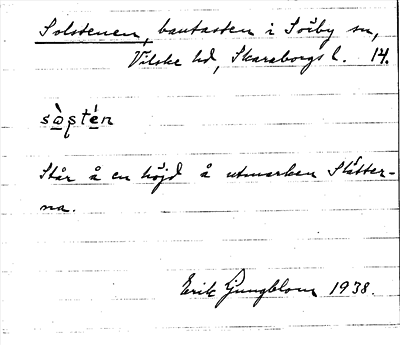 Solstenen, bautasten i Sörby sn,
Vilske hd, Skaraborgs l. 14.
sɷ̀ʂtén
Står å en höjd å utmarken Slätter-
na.
Erik Ljungblom 1938.